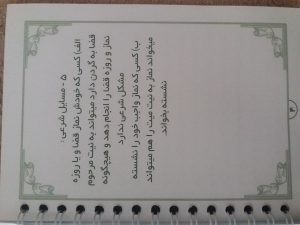 ۵ - مسایل شرعی :
الف) کسی که خودش نماز قضا و یا روزه
قضا به گردن دارد میتواند به نیت مرحوم
نماز و روزه قضا را انجام دهد و هیچگونه
مشکل شرعی ندارد
ب) کسی که نماز واجب خود را نشسته
میخواند نماز به نیت میت را هم میتواند
نشسته بخواند